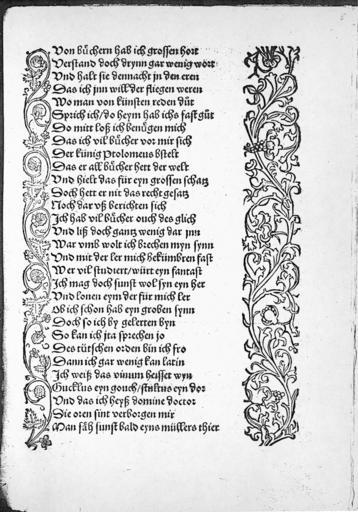 Von buͤchern hab ich grossen hort
Verstand doch drynn gar wenig wort
Vnd halt sie dennacht jn den eren
Das ich jnn will der fliegen weren
Wo man von künsten reden důt
Sprich ich / do heym hab ichs fast gůt
Do mitt loß ich benuͤgen mich
Das ich vil buͤcher vor mir sich
Der künig Ptolomeus bstelt
Das er all buͤcher hett der welt
Vnd hielt das für eyn grossen schatz
Doch hett er nit das recht gesatz
Noch dar vß berichten sich
Ich hab vil buͤcher ouch des glich
Vnd liß doch gantz wenig dar jnn
War vmb wolt ich brechen myn synn
Vnd mit der ler mich bekümbren fast
Wer vil studiert / würt eyn fantast
Ich mag doch sunst wol syn eyn her
Vnd lonen eym der für mich ler
Ob ich schon hab eyn groben synn
Doch so ich by gelerten byn
So kan ich jta sprechen jo
Des tütschen orden bin ich fro
Dann ich gar wenig kan latin
Ich weiß das vinum heisset wyn
Gucklus eyn gouch / stultus eyn dor
Vnd das ich heyß domine doctor
Die oren sint verborgen mir
Man saͤh sunst bald eyns müllers thier